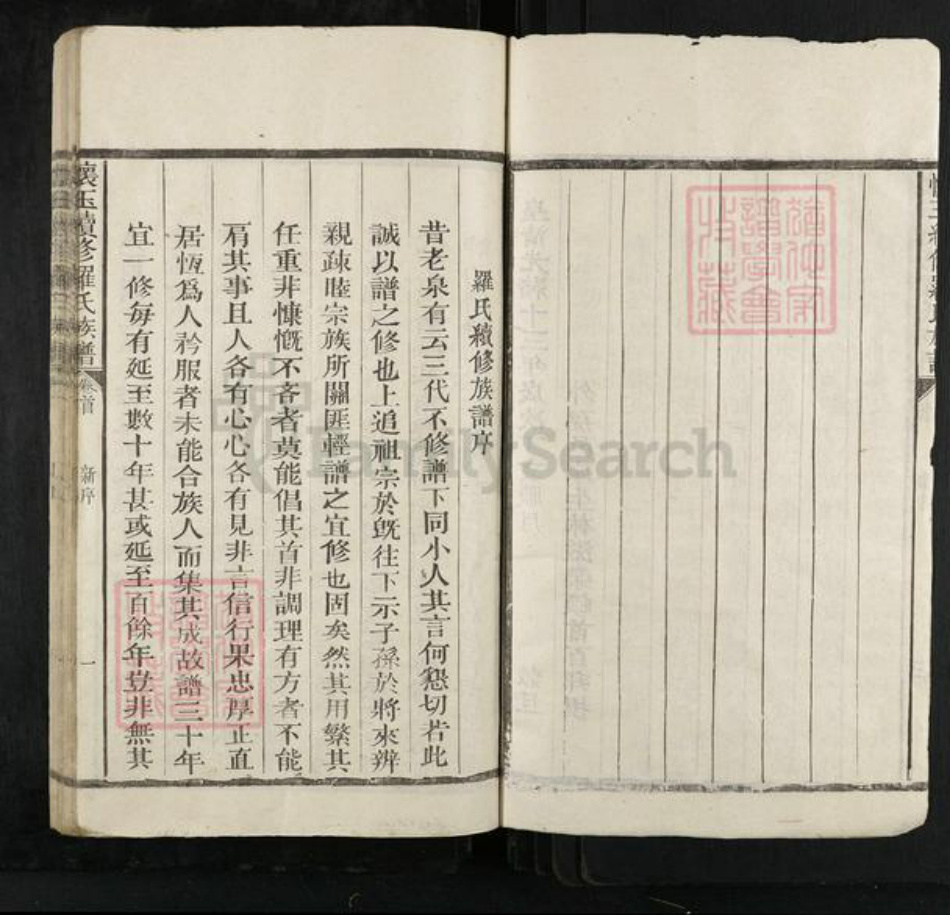 羅氏續修族譜序
昔老泉有云三代不修譜下同小人其言何懇切若此
誠以譜之修也上追祖宗於旣往下示子孫於將來辨
親疎睦宗族所關匪輕譜之宜修也固矣然其用繁其
任重非慷慨不吝者莫能倡其首非調理有方者不能
肩其事且人各有心心各有見非言信行果忠厚正直
居恆爲人矜服者未能合族人而集其成故譜三十年
宜一修每有延至數十年甚或延至百餘年豈非無其
懷玉續修羅氏族譜
卷首
新序
一
FamilySearch